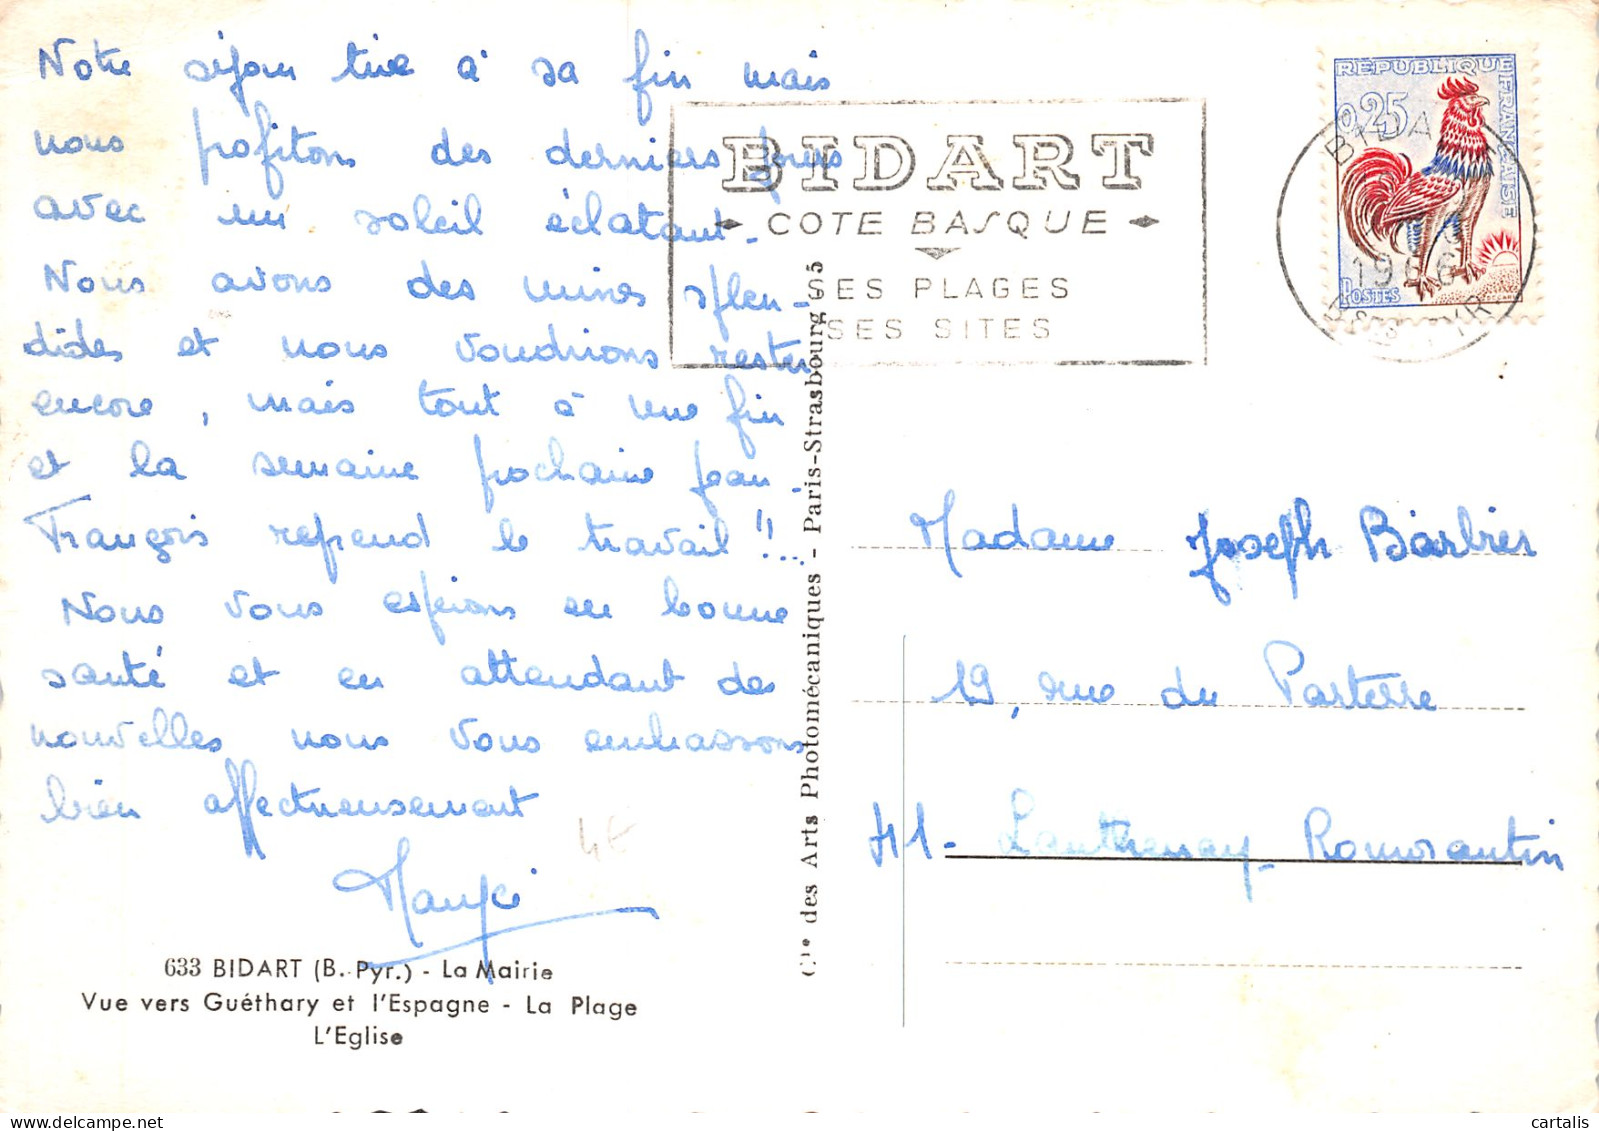 Notre séjour tire à sa fin mais
nous profitons des derniers jours
avec un soleil éclatant.
Nous avons des mines splen-
dides et nous voudrions rester
encore, mais tout à une fin
et la semaine prochaine Jean-
François reprend le travail !!...
Nous vous espérons en bonne
santé et en attendant de
nouvelles nous vous embrassons
bien affectueusement
4€
633 BIDART (B.-Pyr.) - La Mairie
Vue vers Guéthary et l'Espagne - La Plage
L'Eglise
Cie des Arts Photomécaniques - Paris-Strasbourg - 5
BIDART
COTE BASQUE
SES PLAGES
SES SITES
REPUBLIQUE FRANÇAISE
0,25
POSTES
BIDART
1966
BSES PYR
Madame Joseph Barbier
19, rue du Parterre
41 - Lanthenay - Romorantin
cartalis